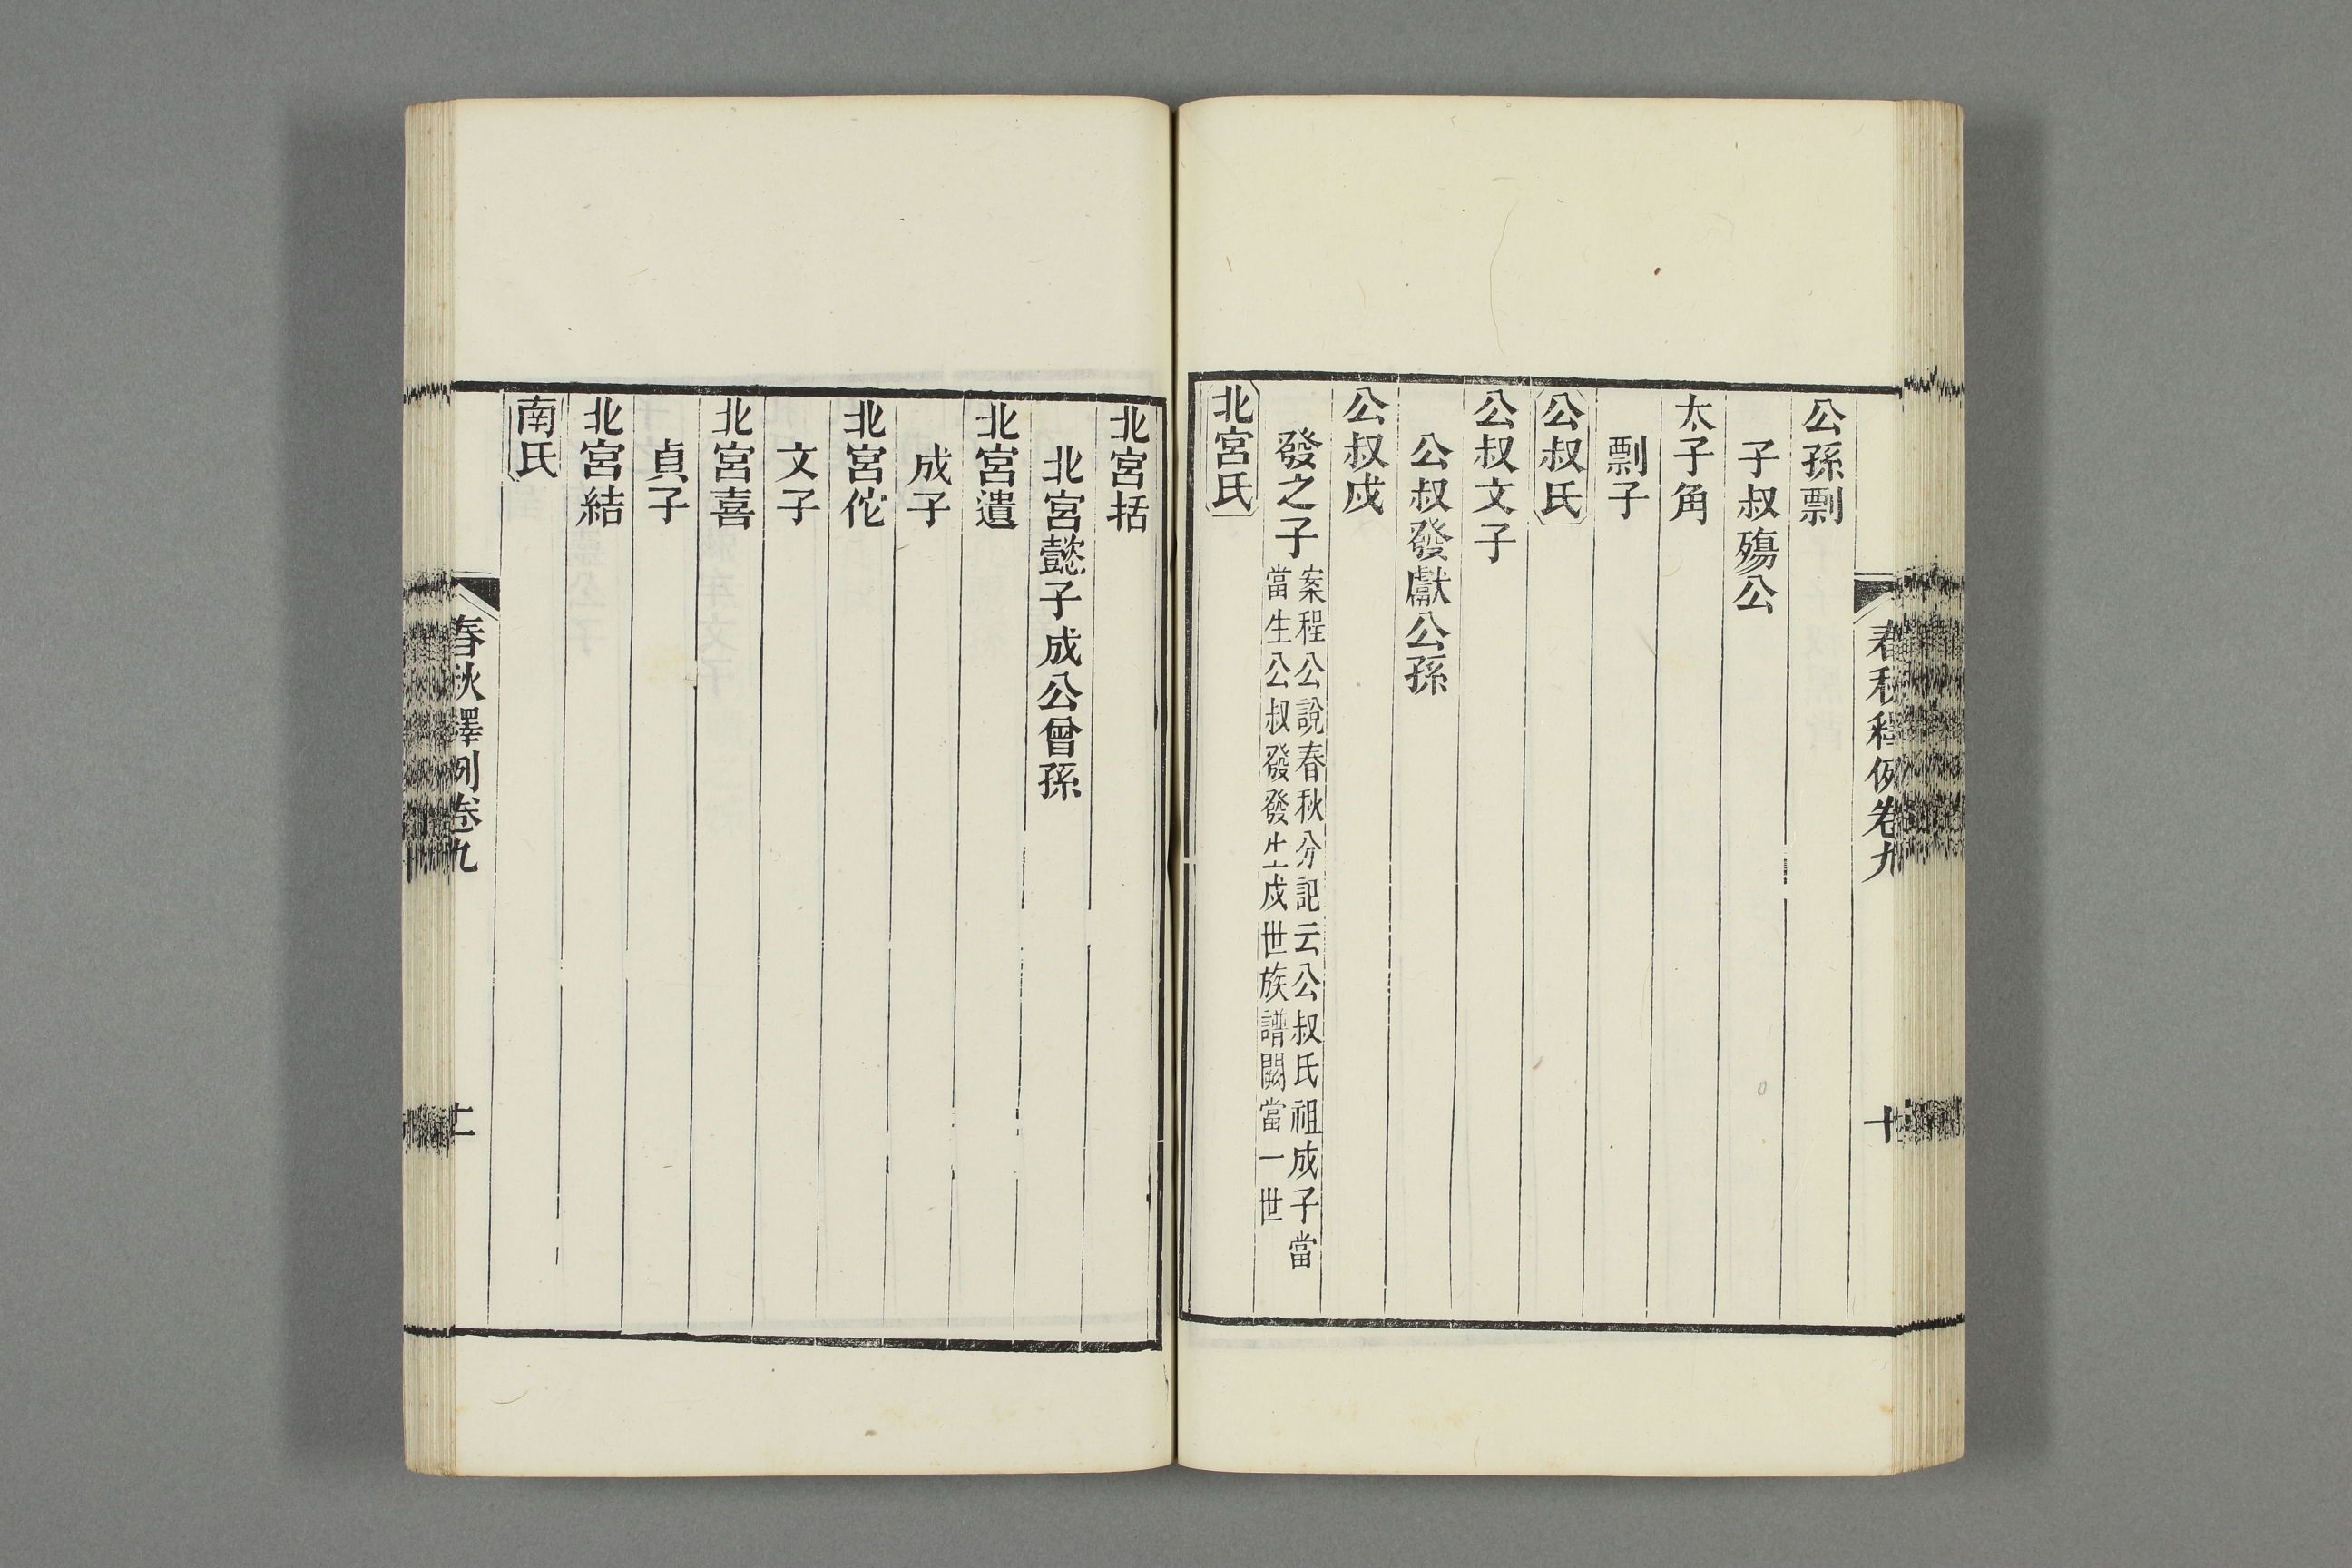 春秋釋例卷九
十
公孫剽
子叔殤公
太子角
剽子
公叔氏
公叔文子
公叔發獻公孫
公叔戍
發之子
案程公說春秋分記云公叔氏祖成子當
當生公叔發發生戍世族譜闕當一世
北宮氏
北宮括
北宮懿子成公曾孫
北宮遺
成子
北宮佗
文子
北宮喜
貞子
北宮結
南氏
春秋釋例卷九